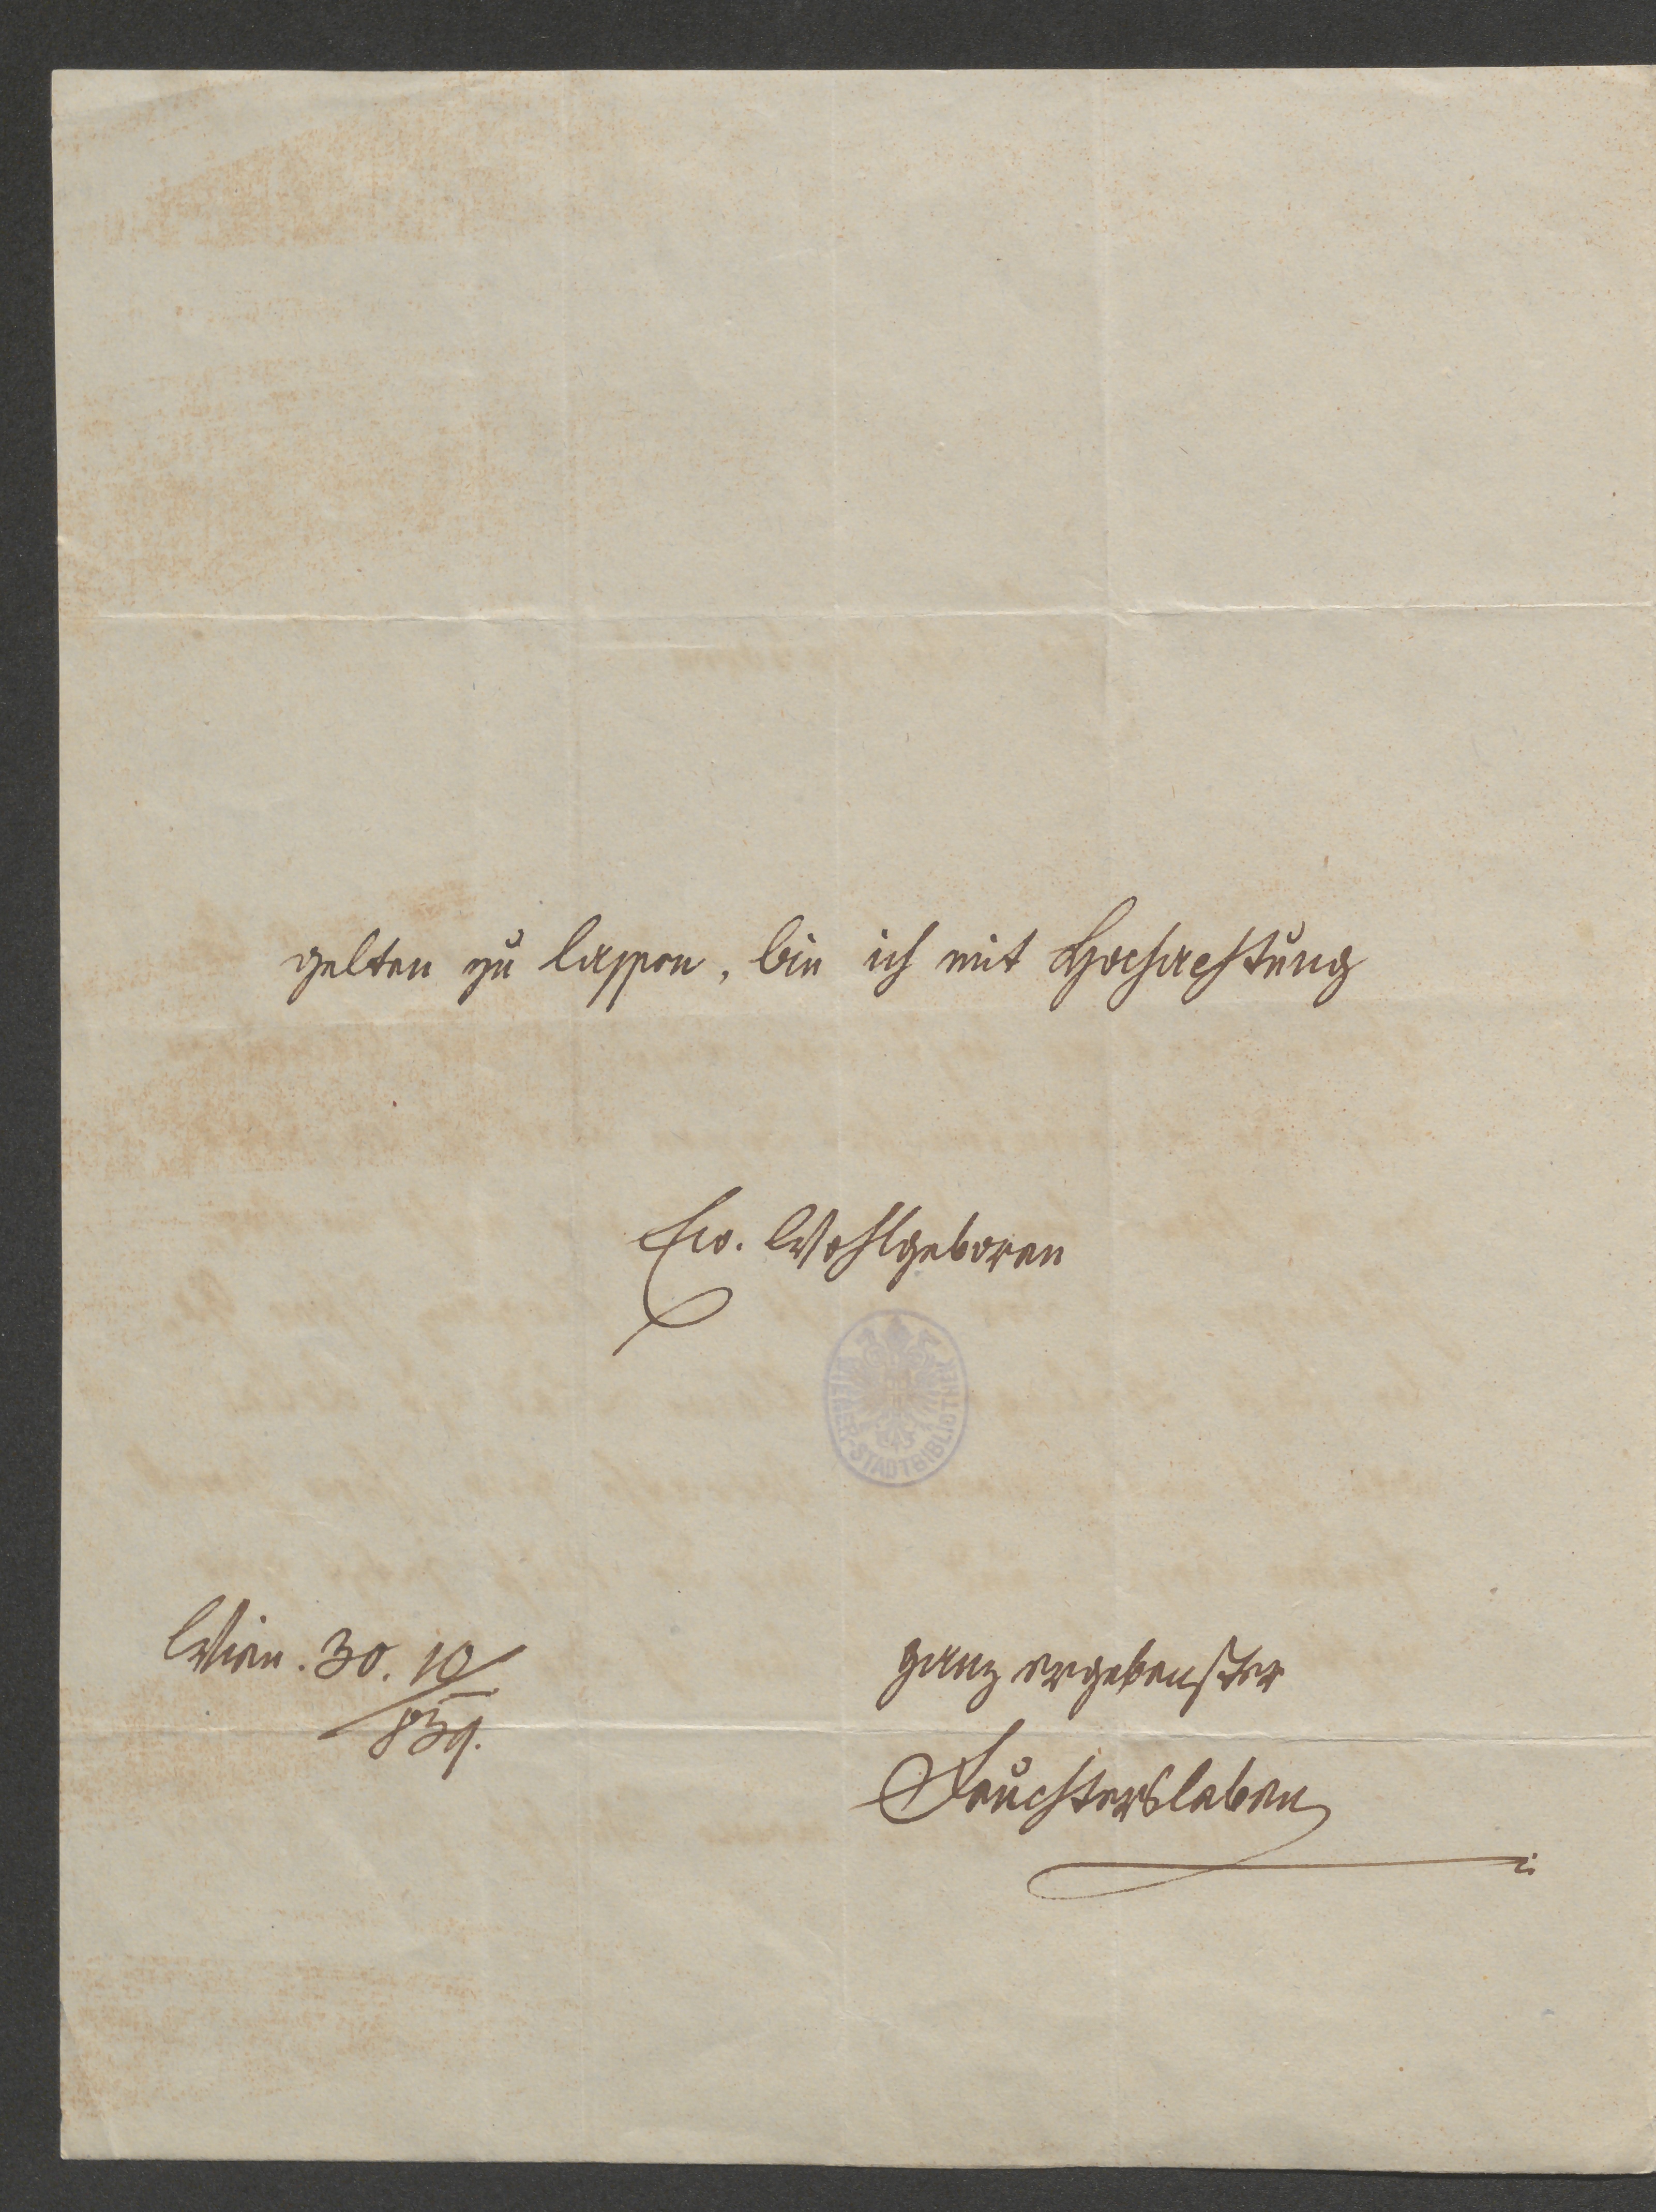 gelten zu lassen, bin ich mit Hochachtung
Ew. Wohlgeboren
WIENER-STADTBIBLIOTHEK
Wien. 30. 10/
839.
ganz ergebenster
Feuchtersleben